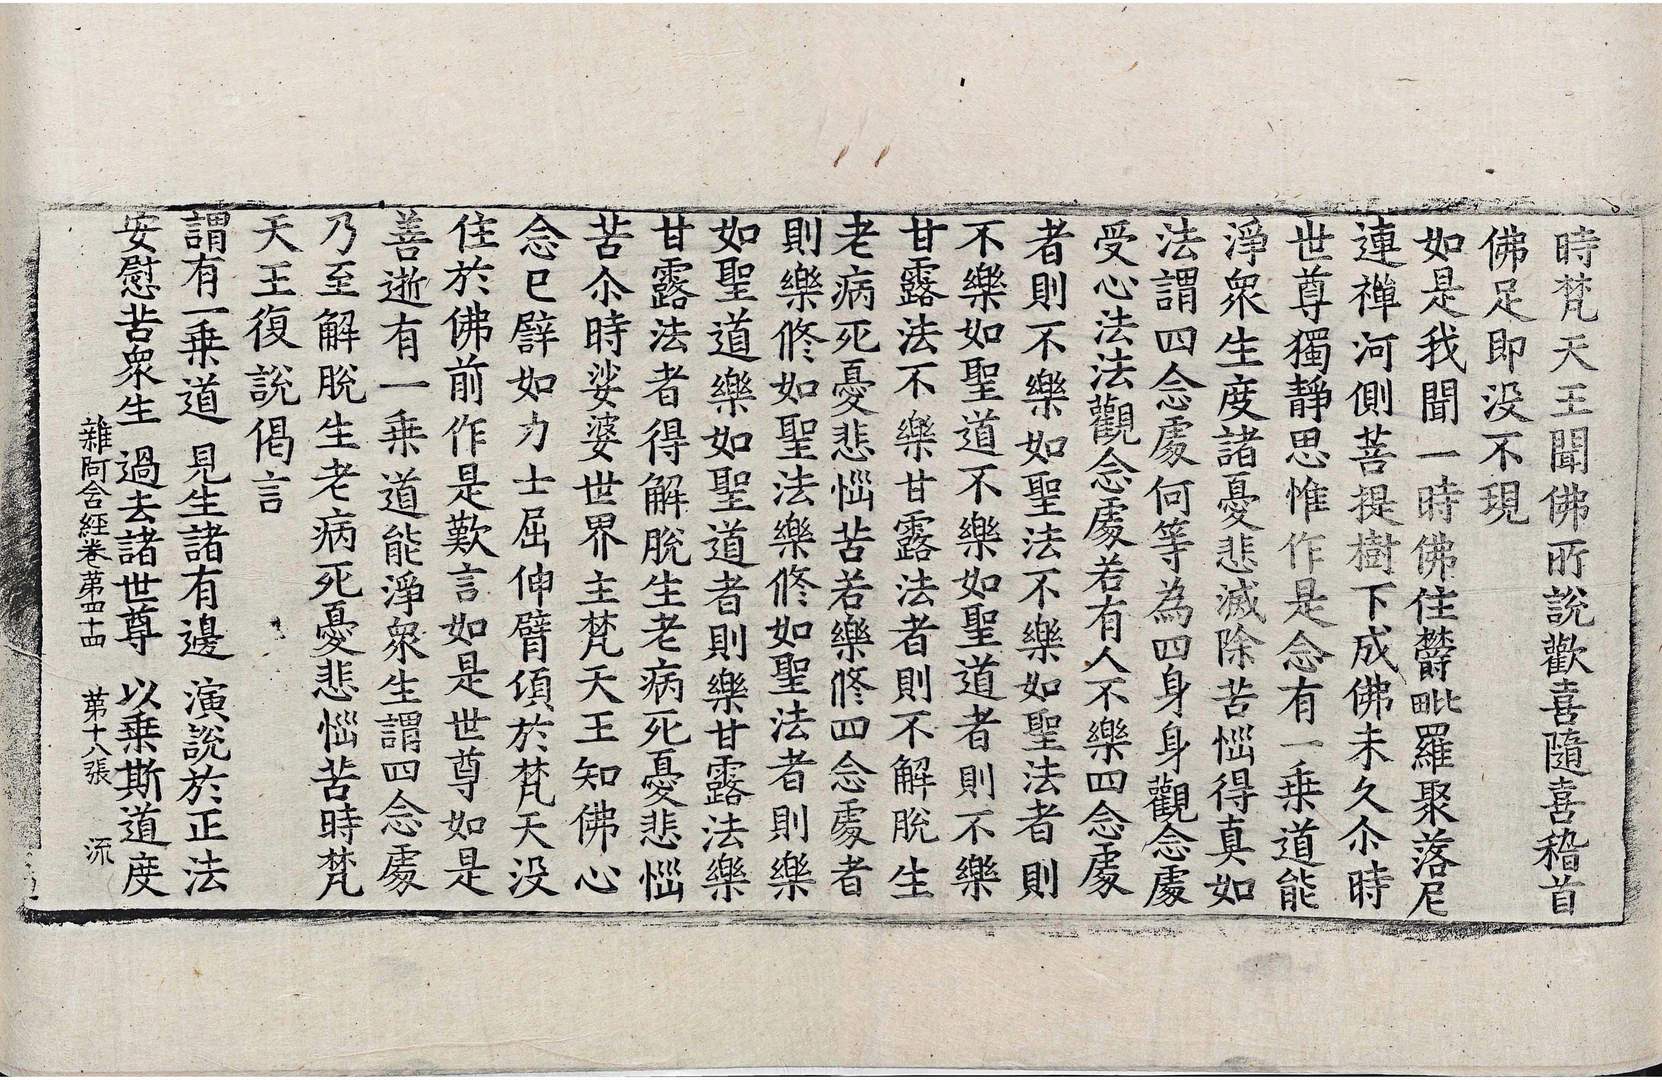 時梵天王聞佛所說歡喜隨喜稽首
佛足即没不現
如是我聞一時佛住欝毗羅聚落尼
連禪河側菩提樹下成佛未久尒時
世尊獨靜思惟作是念有一乗道能
淨衆生度諸憂悲滅除苦惱得真如
法謂四念處何等為四身身觀念處
受心法法觀念處若有人不樂四念處
者則不樂如聖法不樂如聖法者則
不樂如聖道不樂如聖道者則不樂
甘露法不樂甘露法者則不解脫生
老病死憂悲惱苦若樂修四念處者
則樂修如聖法樂修如聖法者則樂
如聖道樂如聖道者則樂甘露法樂
甘露法者得解脫生老病死憂悲惱
苦尒時娑婆世界主梵天王知佛心
念已譬如力士屈伸臂頃於梵天没
住於佛前作是歎言如是世尊如是
善逝有一乗道能淨衆生謂四念處
乃至解脫生老病死憂悲惱苦時梵
天王復說偈言
謂有一乗道 見生諸有邊 演說於正法
安慰苦衆生 過去諸世尊 以乗斯道度
雜阿含經卷第四十四 第十八張 流